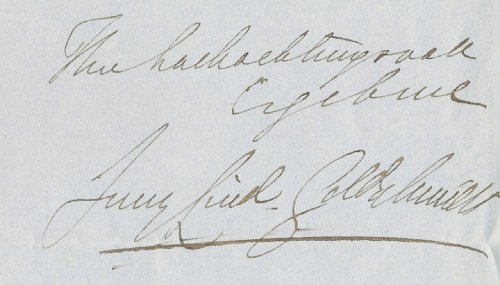 Ihre hochachtungsvoll
Ergebene
Jenny Lind-Goldschmidt